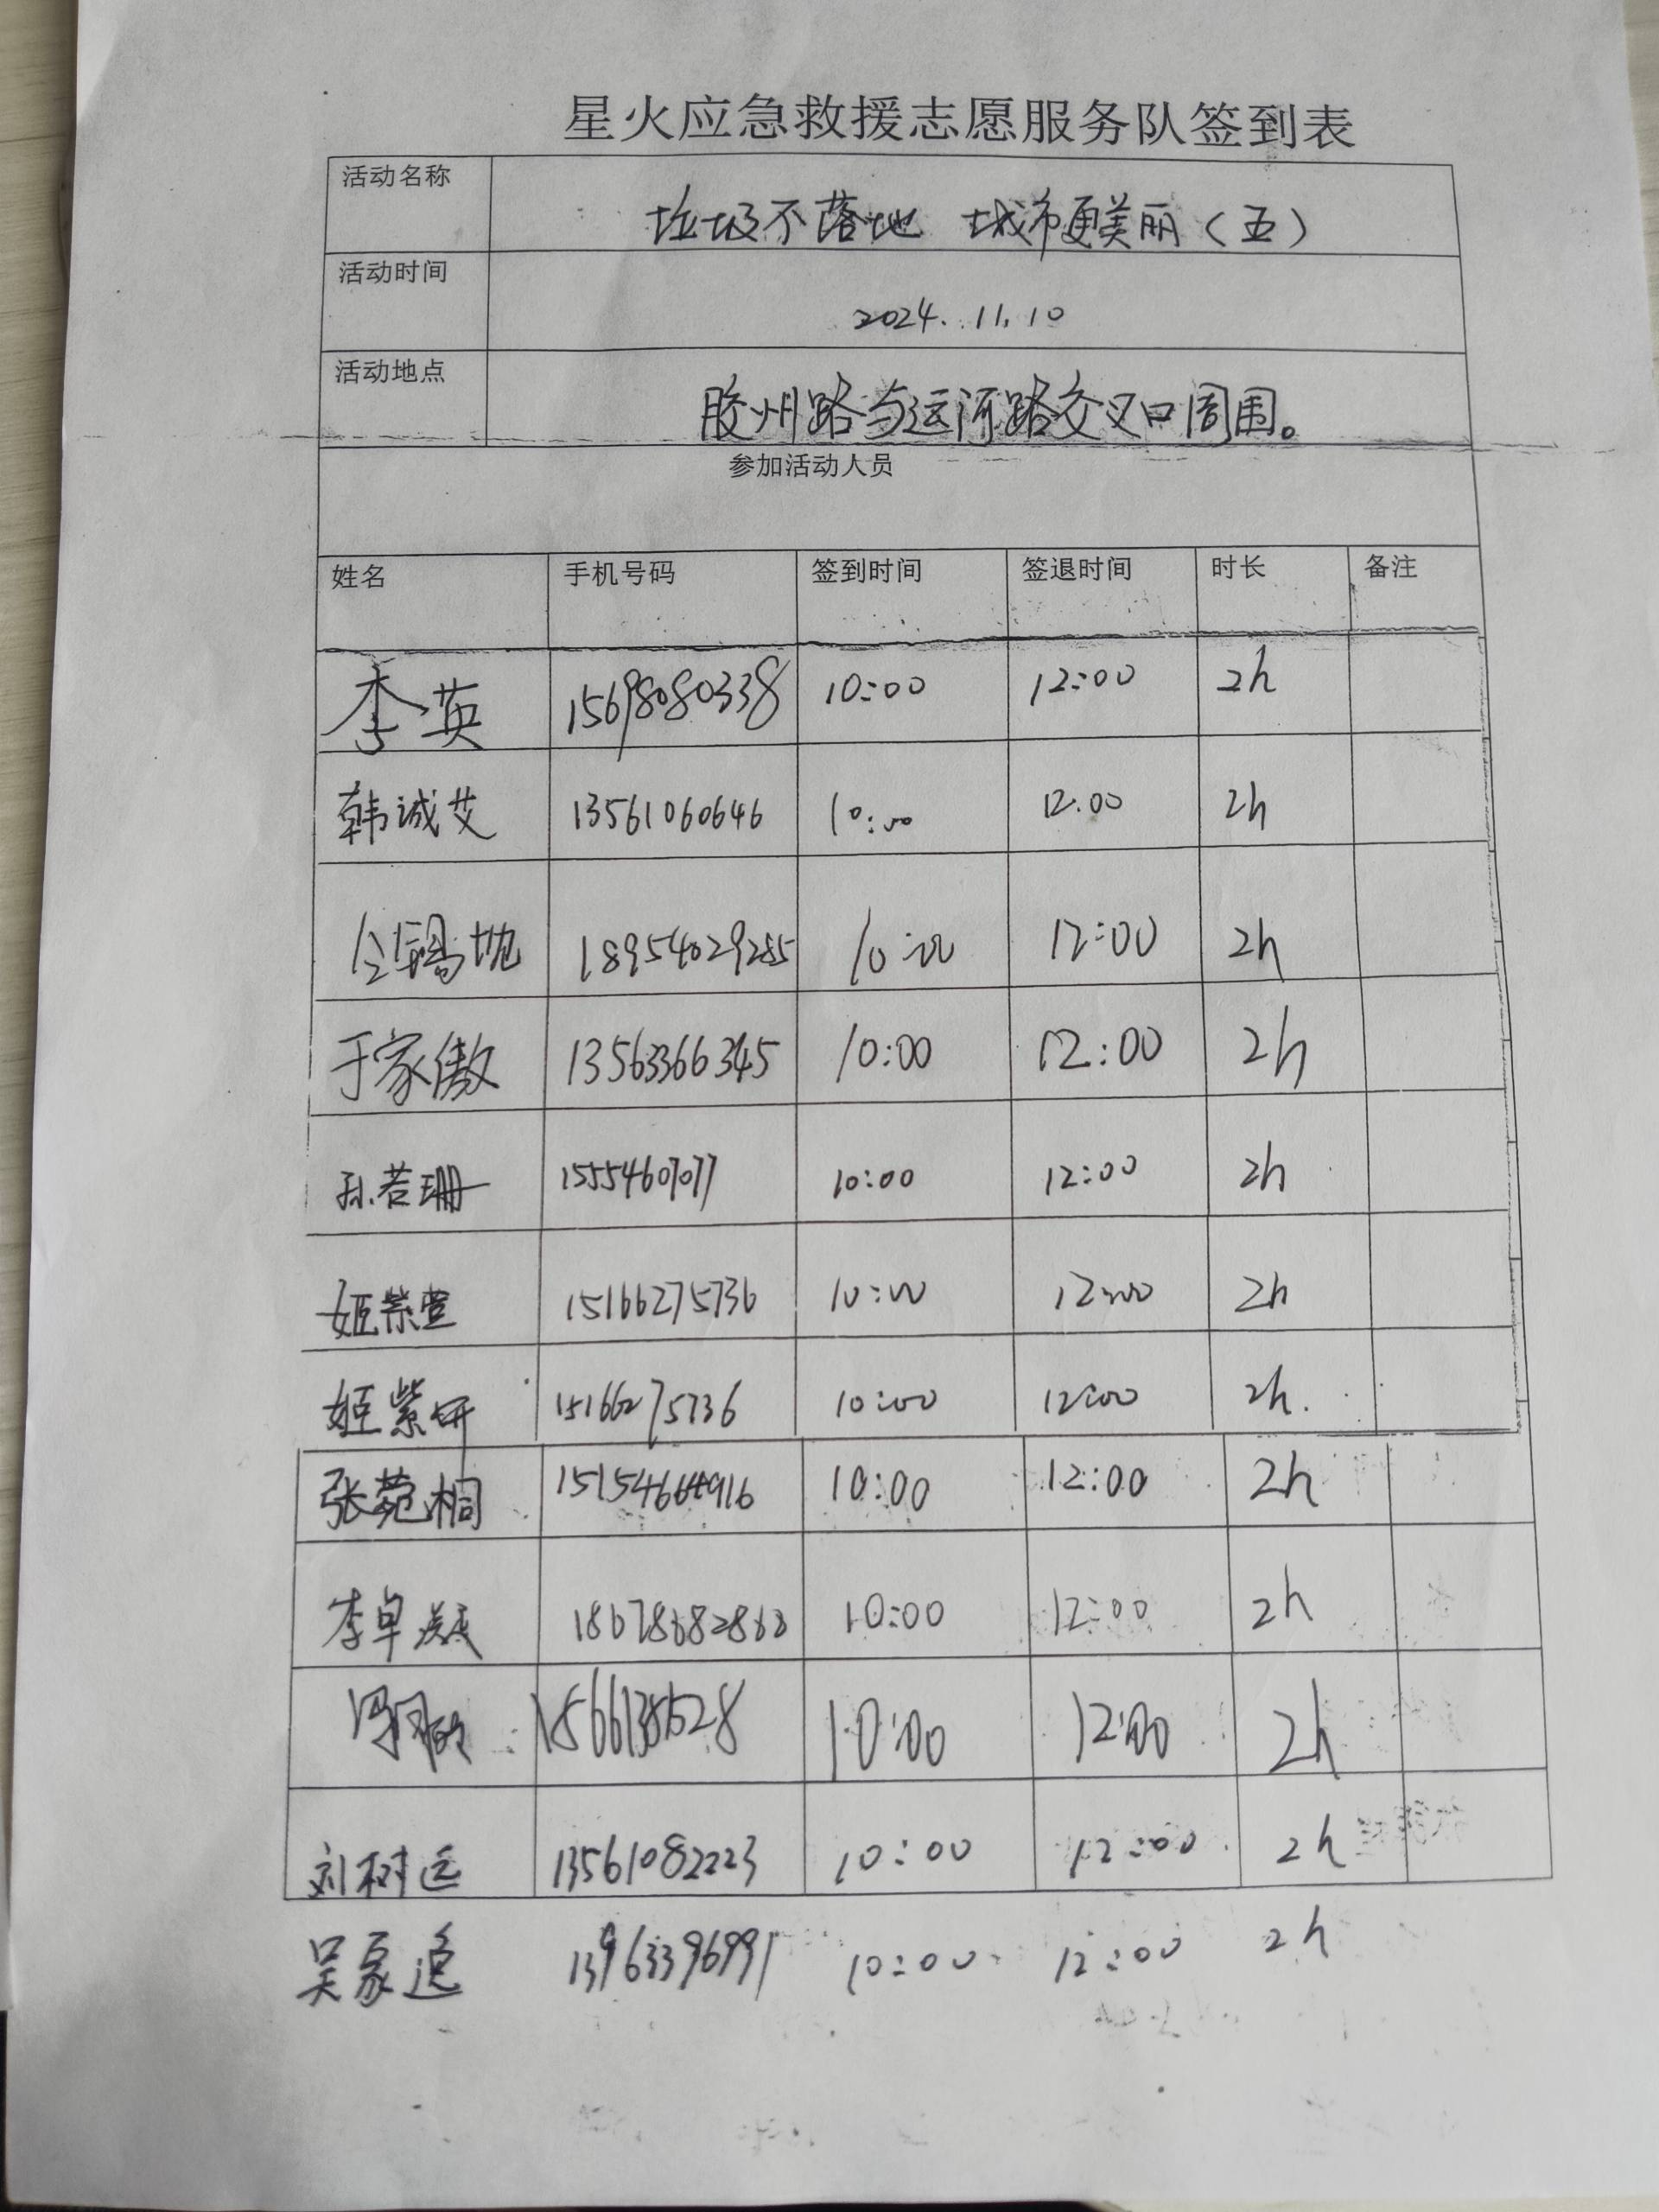 星火应急救援志愿服务队签到表
活动名称 垃圾不落地 城市更美丽（五）
活动时间 2024.11.10
活动地点 胶州路与运河路交叉口周围。
参加活动人员
姓名 手机号码 签到时间 签退时间 时长 备注
李英 15698080338 10:00 12:00 2h
韩诚艾 13561060646 10:00 12:00 2h
18954029285 10:00 12:00 2h
于家傲 13563366345 10:00 12:00 2h
孙若珊 15554607077 10:00 12:00 2h
姬紫萱 15166275736 10:00 12:00 2h
姬紫妍 15166275736 10:00 12:00 2h.
张菀桐 10:00 12:00 2h
李卓 10:00 12:00 2h
10:00 12:00 2h
刘树廷 13561082223 10:00 12:00 2h
吴家逸 13963396991 10:00 12:00 2h